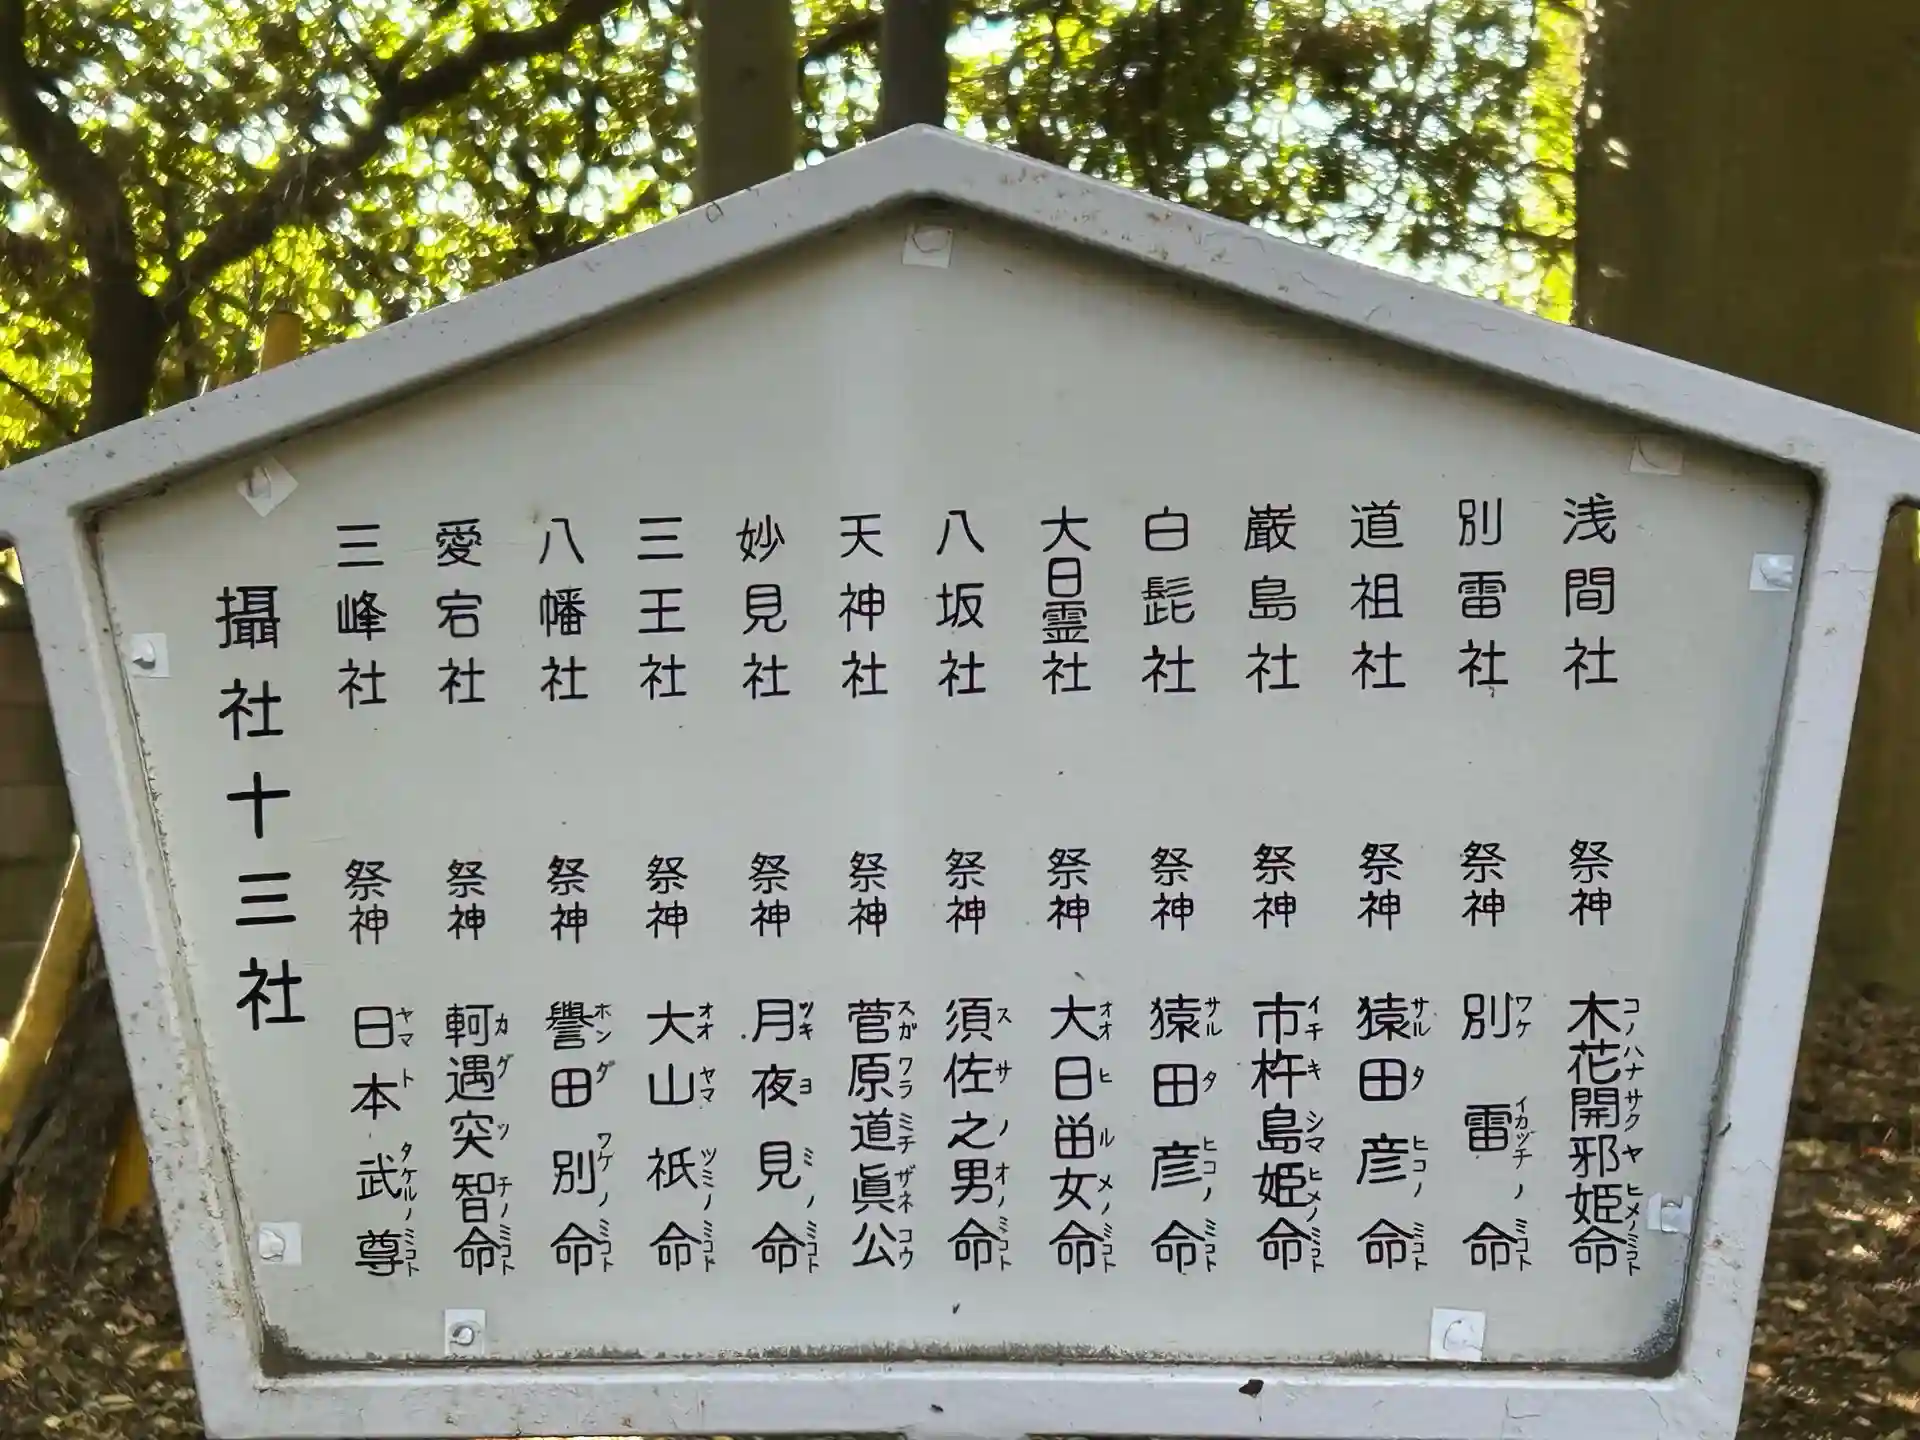 浅間社 祭神 木花開邪姫命 コノハナサクヤヒメノミコト
別雷社 祭神 別雷命 ワケイカヅチノミコト
道祖社 祭神 猿田彦命 サルタヒコノミコト
巌島社 祭神 市杵島姫命 イチキシマヒメノミコト
白髭社 祭神 猿田彦命 サルタヒコノミコト
大日霊社 祭神 大日留女命 オオヒルメノミコト
八坂社 祭神 須佐之男命 スサノオノミコト
天神社 祭神 菅原道眞公 スガワラミチザネコウ
妙見社 祭神 月夜見命 ツキヨミノミコト
三王社 祭神 大山祇命 オオヤマツミノミコト
八幡社 祭神 譽田別命 ホンダワケノミコト
愛宕社 祭神 軻遇突智命 カグツチノミコト
三峰社 祭神 日本武尊 ヤマトタケルノミコト
攝社十三社